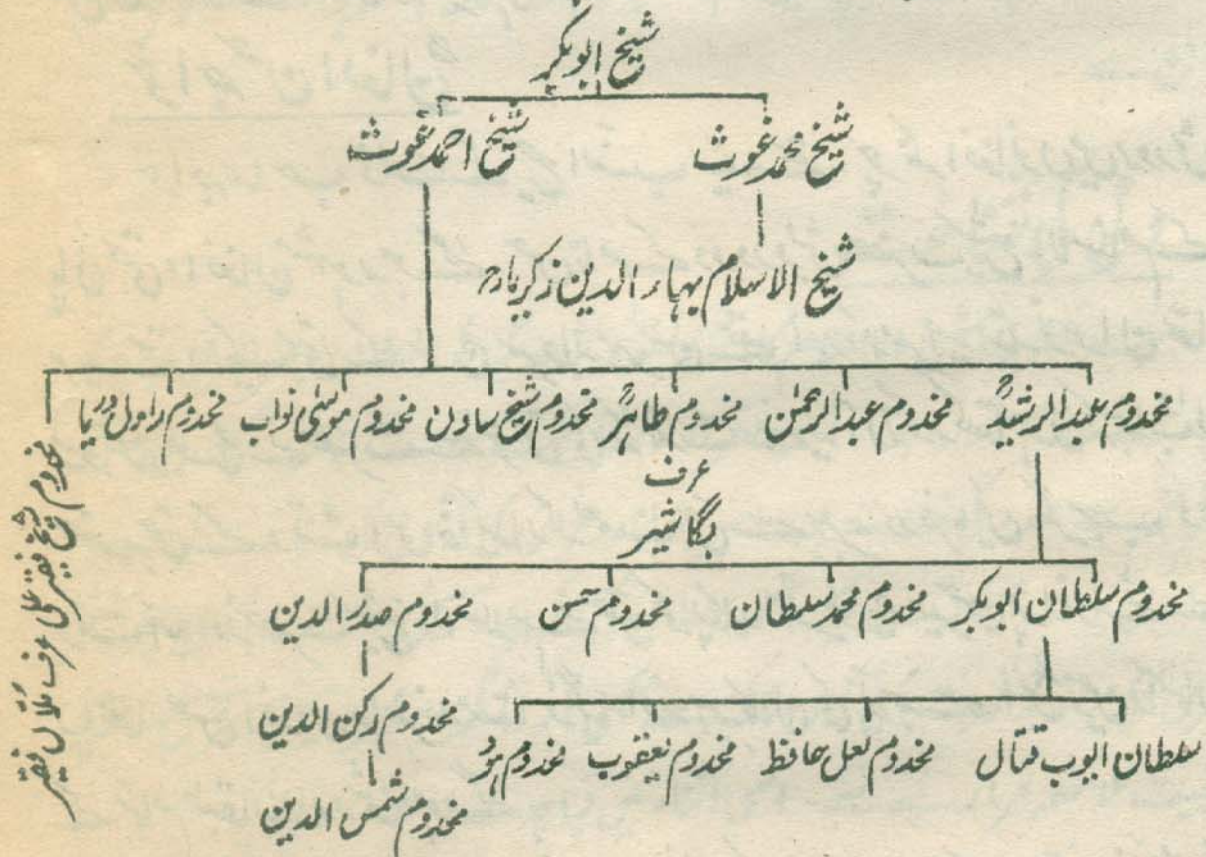 شیخ ابوبکر
شیخ محمد غوث شیخ احمد غوث
شیخ الاسلام بہاء الدین زکریاؒ
مخدوم عبدالرشیدؒ مخدوم عبدالرحمٰن مخدوم طاہرؒ مخدوم شیخ سادن مخدوم موسٰی نواب مخدوم راول دریا
عرف
بگا شیر
مخدوم شیخ فقیر علی عرف ملاں فقیر
مخدوم سلطان ابوبکر مخدوم محمد سلطان مخدوم حسن مخدوم صدر الدین
مخدوم رکن الدین
سلطان ایوب قتال مخدوم لعل حافظ مخدوم یعقوب مخدوم
مخدوم شمس الدین